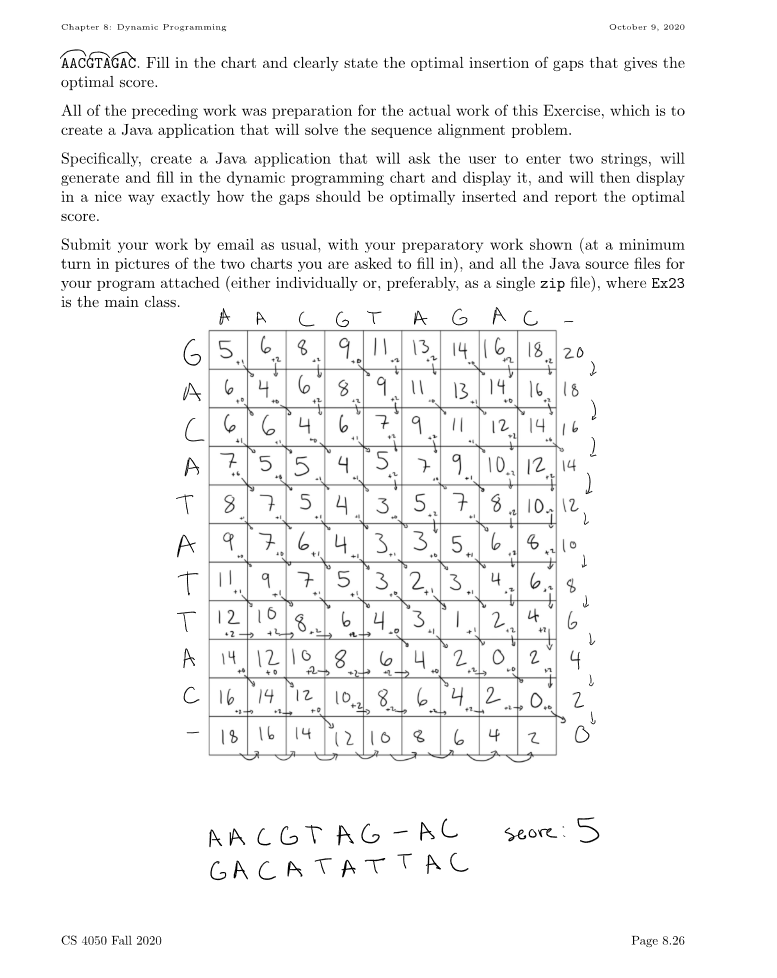 Chapter 8: Dynamic Programming October 9, 2020
AACGTAGAC. Fill in the chart and clearly state the optimal insertion of gaps that gives the
optimal score.
All of the preceding work was preparation for the actual work of this Exercise, which is to
create a Java application that will solve the sequence alignment problem.
Specifically, create a Java application that will ask the user to enter two strings, will
generate and fill in the dynamic programming chart and display it, and will then display
in a nice way exactly how the gaps should be optimally inserted and report the optimal
score.
Submit your work by email as usual, with your preparatory work shown (at a minimum
turn in pictures of the two charts you are asked to fill in), and all the Java source files for
your program attached (either individually or, preferably, as a single zip file), where Ex23
is the main class.
A A C G T A G A C -
G 5 6 8 9 11 13 14 16 18 20
A 6 4 6 8 9 11 13 14 16 18
C 6 6 4 6 7 9 11 12 14 16
A 7 5 5 4 5 7 9 10 12 14
T 8 7 5 4 3 5 7 8 10 12
A 9 7 6 4 3 3 5 6 8 10
T 11 9 7 5 3 2 3 4 6 8
T 12 10 8 6 4 3 1 2 4 6
A 14 12 10 8 6 4 2 0 2 4
C 16 14 12 10 8 6 4 2 0 2
- 18 16 14 12 10 8 6 4 2 0
AACGTAG-AC score: 5
GACATATTAC
CS 4050 Fall 2020 Page 8.26